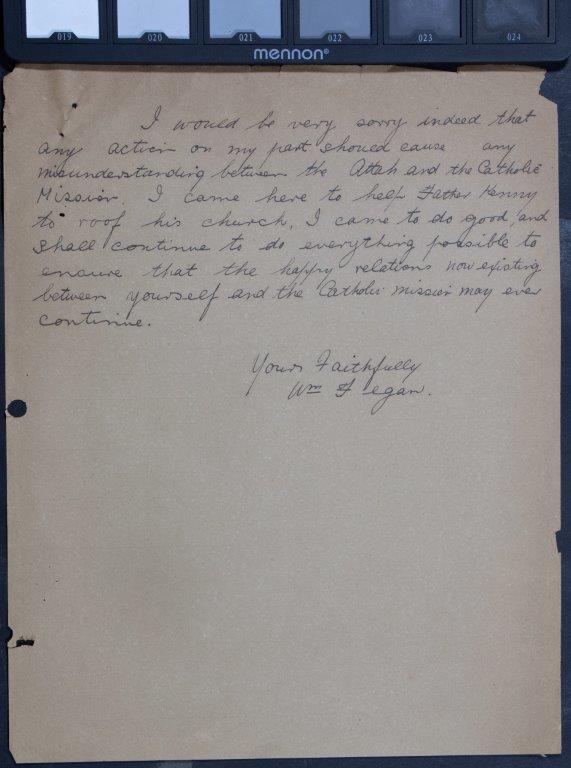 019 020 021 022 023 024
mennon®
I would be very sorry indeed that
any action on my part should cause any
misunderstanding between the Attah and the Catholic
Mission. I came here to help Father Kenny
to roof his church, I came to do good, and
shall continue to do everything possible to
ensure that the happy relations now existing
between yourself and the Catholic mission may ever
continue.
Yours Faithfully
Wm Flegan.